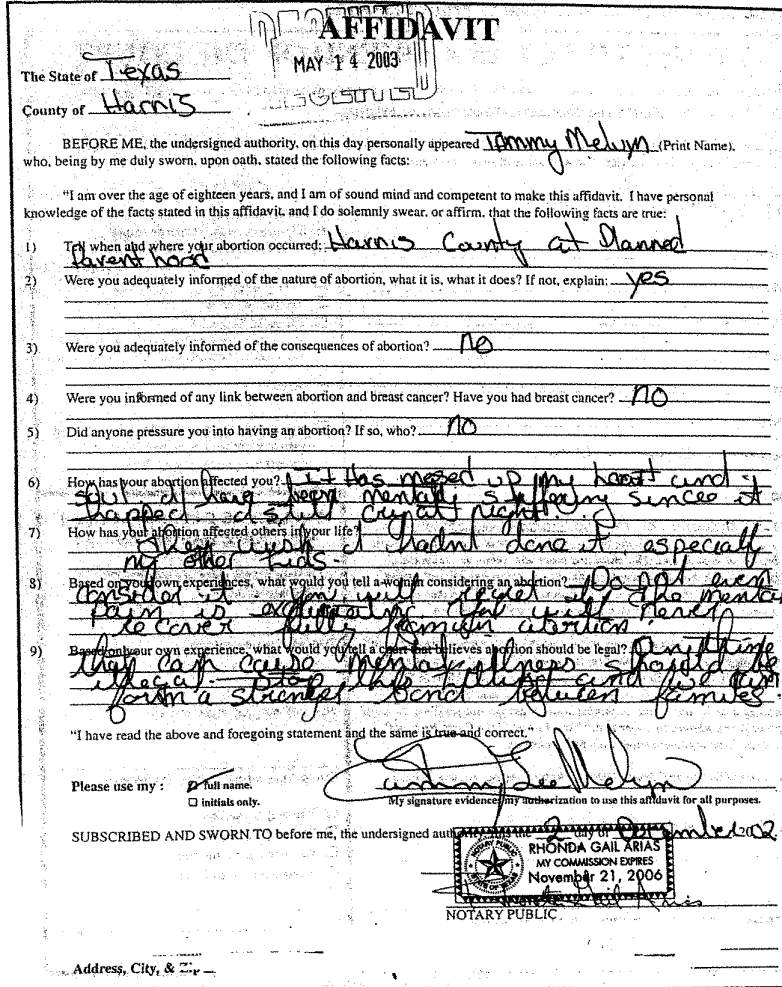 AFFIDAVIT
MAY 14 2003
The State of Texas
County of Harris
BEFORE ME, the undersigned authority, on this day personally appeared Tammy Melvyn (Print Name),
who, being by me duly sworn, upon oath, stated the following facts:
"I am over the age of eighteen years, and I am of sound mind and competent to make this affidavit. I have personal
knowledge of the facts stated in this affidavit, and I do solemnly swear, or affirm, that the following facts are true:
1) Tell when and where your abortion occurred: Harris County at Planned
Parent hood
2) Were you adequately informed of the nature of abortion, what it is, what it does? If not, explain: yes
3) Were you adequately informed of the consequences of abortion? no
4) Were you informed of any link between abortion and breast cancer? Have you had breast cancer? no
5) Did anyone pressure you into having an abortion? If so, who? no
6) How has your abortion affected you? It Has messed up my heart and
soul I have been mentally suffering sincee it
happed I still cry at night.
7) How has your abortion affected others in your life?
They wish I hadnt done it, especially
my other kids.
8) Based on your own experiences, what would you tell a woman considering an abortion? Do not even
consider it. You will regret it. The mental
pain is You will never
recover fully abortion.
9) Based on your own experience, what would you tell a that believes abortion should be legal? Anything
that can cause mental illness should be
illegal. Stop this killing and
form a stronger bond between
"I have read the above and foregoing statement and the same is true and correct."
Please use my : full name.
initials only.
Tammy Lee Melvyn
My signature evidences my authorization to use this affidavit for all purposes.
SUBSCRIBED AND SWORN TO before me, the undersigned authority, this the 2 day of December 2002
NOTARY PUBLIC
STATE OF TEXAS
RHONDA GAIL ARIAS
MY COMMISSION EXPIRES
November 21, 2006
Rhonda Gail Arias
NOTARY PUBLIC
Address, City, & Zip